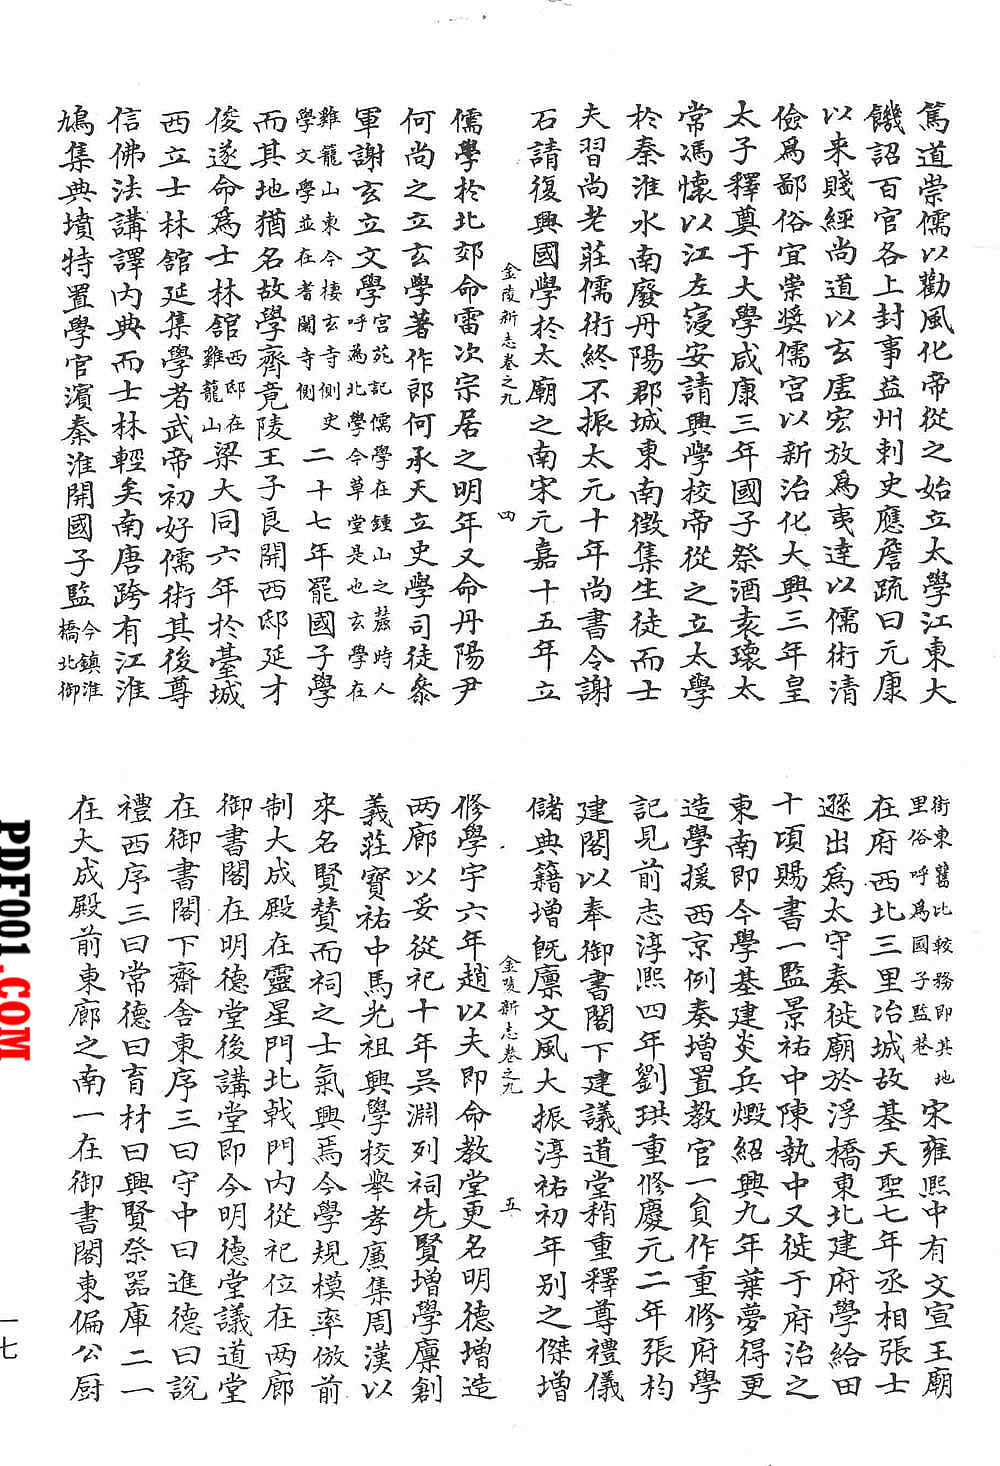 篤道崇儒以勸風化帝從之始立太學江東大
饑詔百官各上封事益州刺史應詹疏曰元康
以来賤經尚道以玄虛宏放爲夷達以儒術清
儉爲鄙俗宜崇奬儒宮以新治化大興三年皇
太子釋奠于大學咸康三年國子祭酒袁瓌太
常馮懷以江左寖安請興學校帝從之立太學
於秦淮水南廢丹陽郡城東南徵集生徒而士
夫習尚老莊儒術終不振太元十年尚書令謝
石請復興國學於太廟之南宋元嘉十五年立
金陵新志卷之九 四
儒學於北郊命雷次宗居之明年又命丹陽尹
何尚之立玄學著作郎何承天立史學司徒叅
軍謝玄立文學宮苑記儒學在鍾山之麓時人呼為北學今草堂是也玄學在
雞籠山東今棲玄寺側史學文學並在耆闍寺側二十七年罷國子學
而其地猶名故學齊竟陵王子良開西邸延才
俊遂命爲士林舘西邸在雞籠山梁大同六年於臺城
西立士林舘延集學者武帝初好儒術其後尊
信佛法講譯内典而士林輕矣南唐跨有江淮
鳩集典墳特置學官濱秦淮開國子監今鎮淮橋北御
街東舊比較務即其地里俗呼爲國子監巷宋雍熙中有文宣王廟
在府西北三里冶城故基天聖七年丞相張士
遜出爲太守奏徙廟於浮橋東北建府學給田
十頃賜書一監景祐中陳執中又徙于府治之
東南即今學基建炎兵燬紹興九年葉夢得更
造學援西京例奏增置教官一員作重修府學
記見前志淳熙四年劉珙重修慶元二年張杓
建閣以奉御書閣下建議道堂稍重釋尊禮儀
儲典籍增旣廪文風大振淳祐初年别之傑增
金陵新志卷之九 五
修學宇六年趙以夫即命教堂更名明德增造
两廊以妥從祀十年吳淵列祠先賢增學廪創
義莊寳祐中馬光祖興學校舉孝廉集周漢以
來名賢賛而祠之士氣興焉今學規模率倣前
制大成殿在靈星門北戟門内從祀位在两廊
御書閣在明德堂後講堂即今明德堂議道堂
在御書閣下齋舎東序三曰守中曰進德曰說
禮西序三曰常德曰育材曰興賢祭器庫二一
在大成殿前東廊之南一在御書閣東偏公厨
一七
PDF001.COM